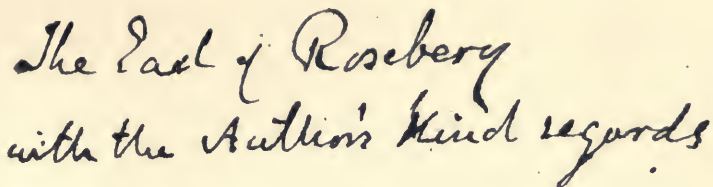 The Earl of Rosebery
with the Author's Kind regards